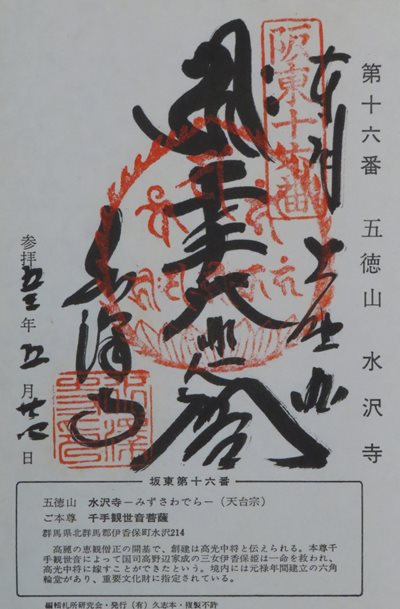 第十六番 五徳山 水沢寺
奉拝 上州
阪東十六番
千手大悲閣
水澤寺
参拝五三年五月廿七日
坂東第十六番
五徳山 水沢寺－みずさわでら－（天台宗）
ご本尊 千手観世音菩薩
群馬県北群馬郡伊香保町水沢214
高麗の恵観僧正の開基で、創建は高光中将と伝えられる。本尊千
手観世音によって国司高野辺家成の三女伊香保姫は一命を救われ、
高光中将に嫁すことができたという。境内には元禄年間建立の六角
輪堂があり、重要文化財に指定されている。
編輯札所研究会・発行（有）久志本・複製不許